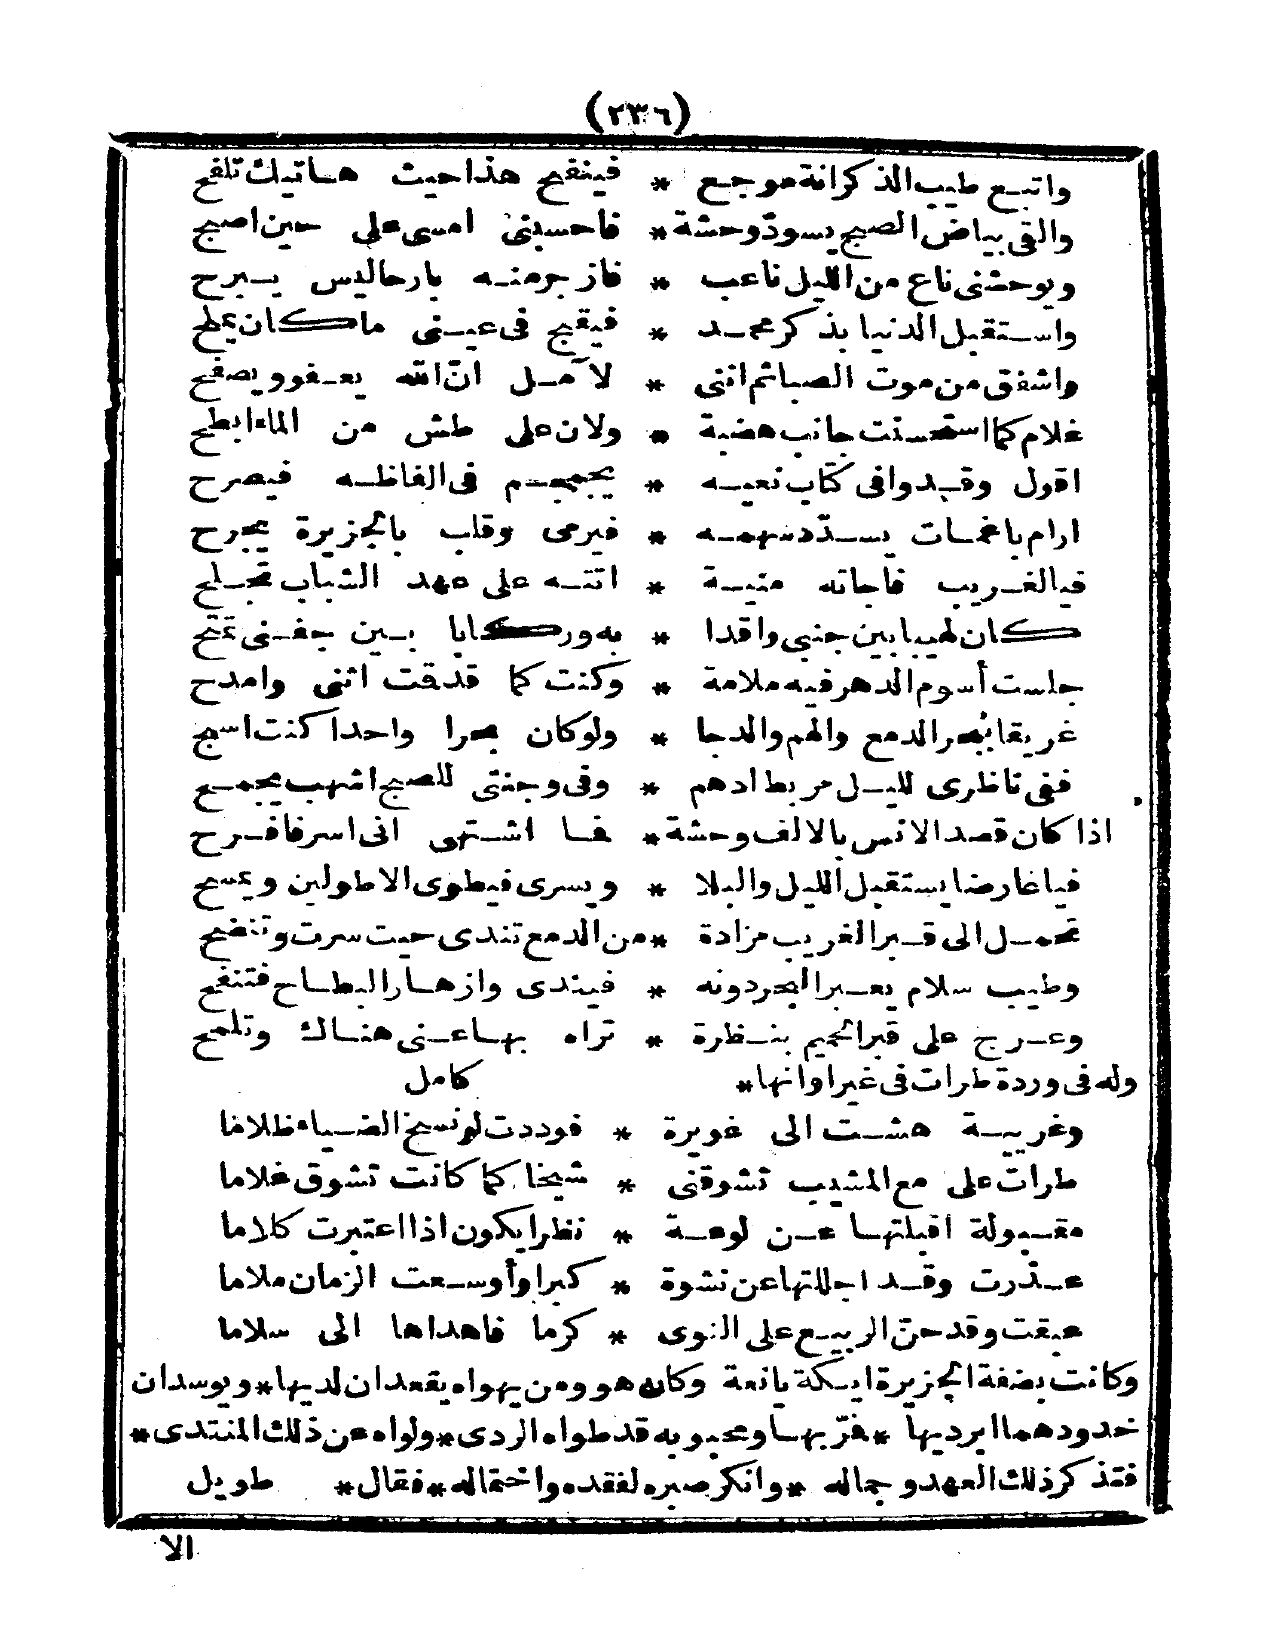 (٢٣٦)
واتبع طيب الذكر انة موجع * فينفح هذا حيث هاتيك تلفح
والقى بياض الصبح يسود وحشة * فاحسبنى امسى على حين اصبح
ويوحشنى ناع من الليل ناعب * فازجر منه بارحا ليس يبرح
واستقبل الدنيا بذكر محمد * فيقبح فى عينى ما كان يملح
واشفق من موت الصبا ثم اننى * لآمل ان الله يعفو ويصفح
غلام كما استحسنت جانب هضبة * ولان على طش من الماء ابطح
اقول وقد وافى كتاب نعيه * يجمجم فى الفاظه فيصرح
ارام باغمات يسدد سهمه * فيرمى وقلب بالجزيرة يجرح
فيا لغريب فاجاته منية * اتته على عهد الشباب تجلح
كان لهيبا بين جنبى واقدا * به وركايا بين جفنى تمتح
جلست أسوم الدهر فيه ملامة * وكنت كما قد قت اثنى وامدح
غريقا ببحر الدمع والهم والدجا * ولو كان بحرا واحدا كنت اسبح
ففى ناظرى لليل مربط ادهم * وفى وجنتى للصبح اشهب يجمح
اذا كان قصد الانس بالالف وحشة * فما اشتهى انى اسر فافرح
فيا عارضا يستقبل الليل والبلا * ويسرى فيطوى الاطولين ويمسح
تحمل الى قبر الغريب مزادة * من الدمع تندى حيث سرت وتنضح
وطيب سلام يعبر البحر دونه * فيندى وازهار البطاح فتنفح
وعرج على قبر الحميم بنظرة * تراه بها عنى هناك وتلمح
وله فى وردة طرات فى غير اوانها* كامل
وغريبة هشت الى غويرة * فوددت لو نسخ الضياء ظلاما
طرات على مع المشيب تشوقنى * شيخا كما كانت تشوق غلاما
مقبولة اقبلتها عن لوعة * نظرا يكون اذا اعتبرت كلاما
عذرت وقد احللتها عن نشوة * كبرا وأوسعت الزمان ملاما
عبقت وقد حن الربيع على النوى * كرما فاهداها الى سلاما
وكانت بضفة الجزيرة ايكة يانعة وكان هو ومن يهواه يقعدان لديها* ويوسدان
خدودهما ابرديها *فمر بها ومحبوبه قد طواه الردى*ولواه عن ذلك المنتدى*
فتذكر ذلك العهد وجماله *وانكر صبره لفقده واحتماله*فقال* طويل
الا